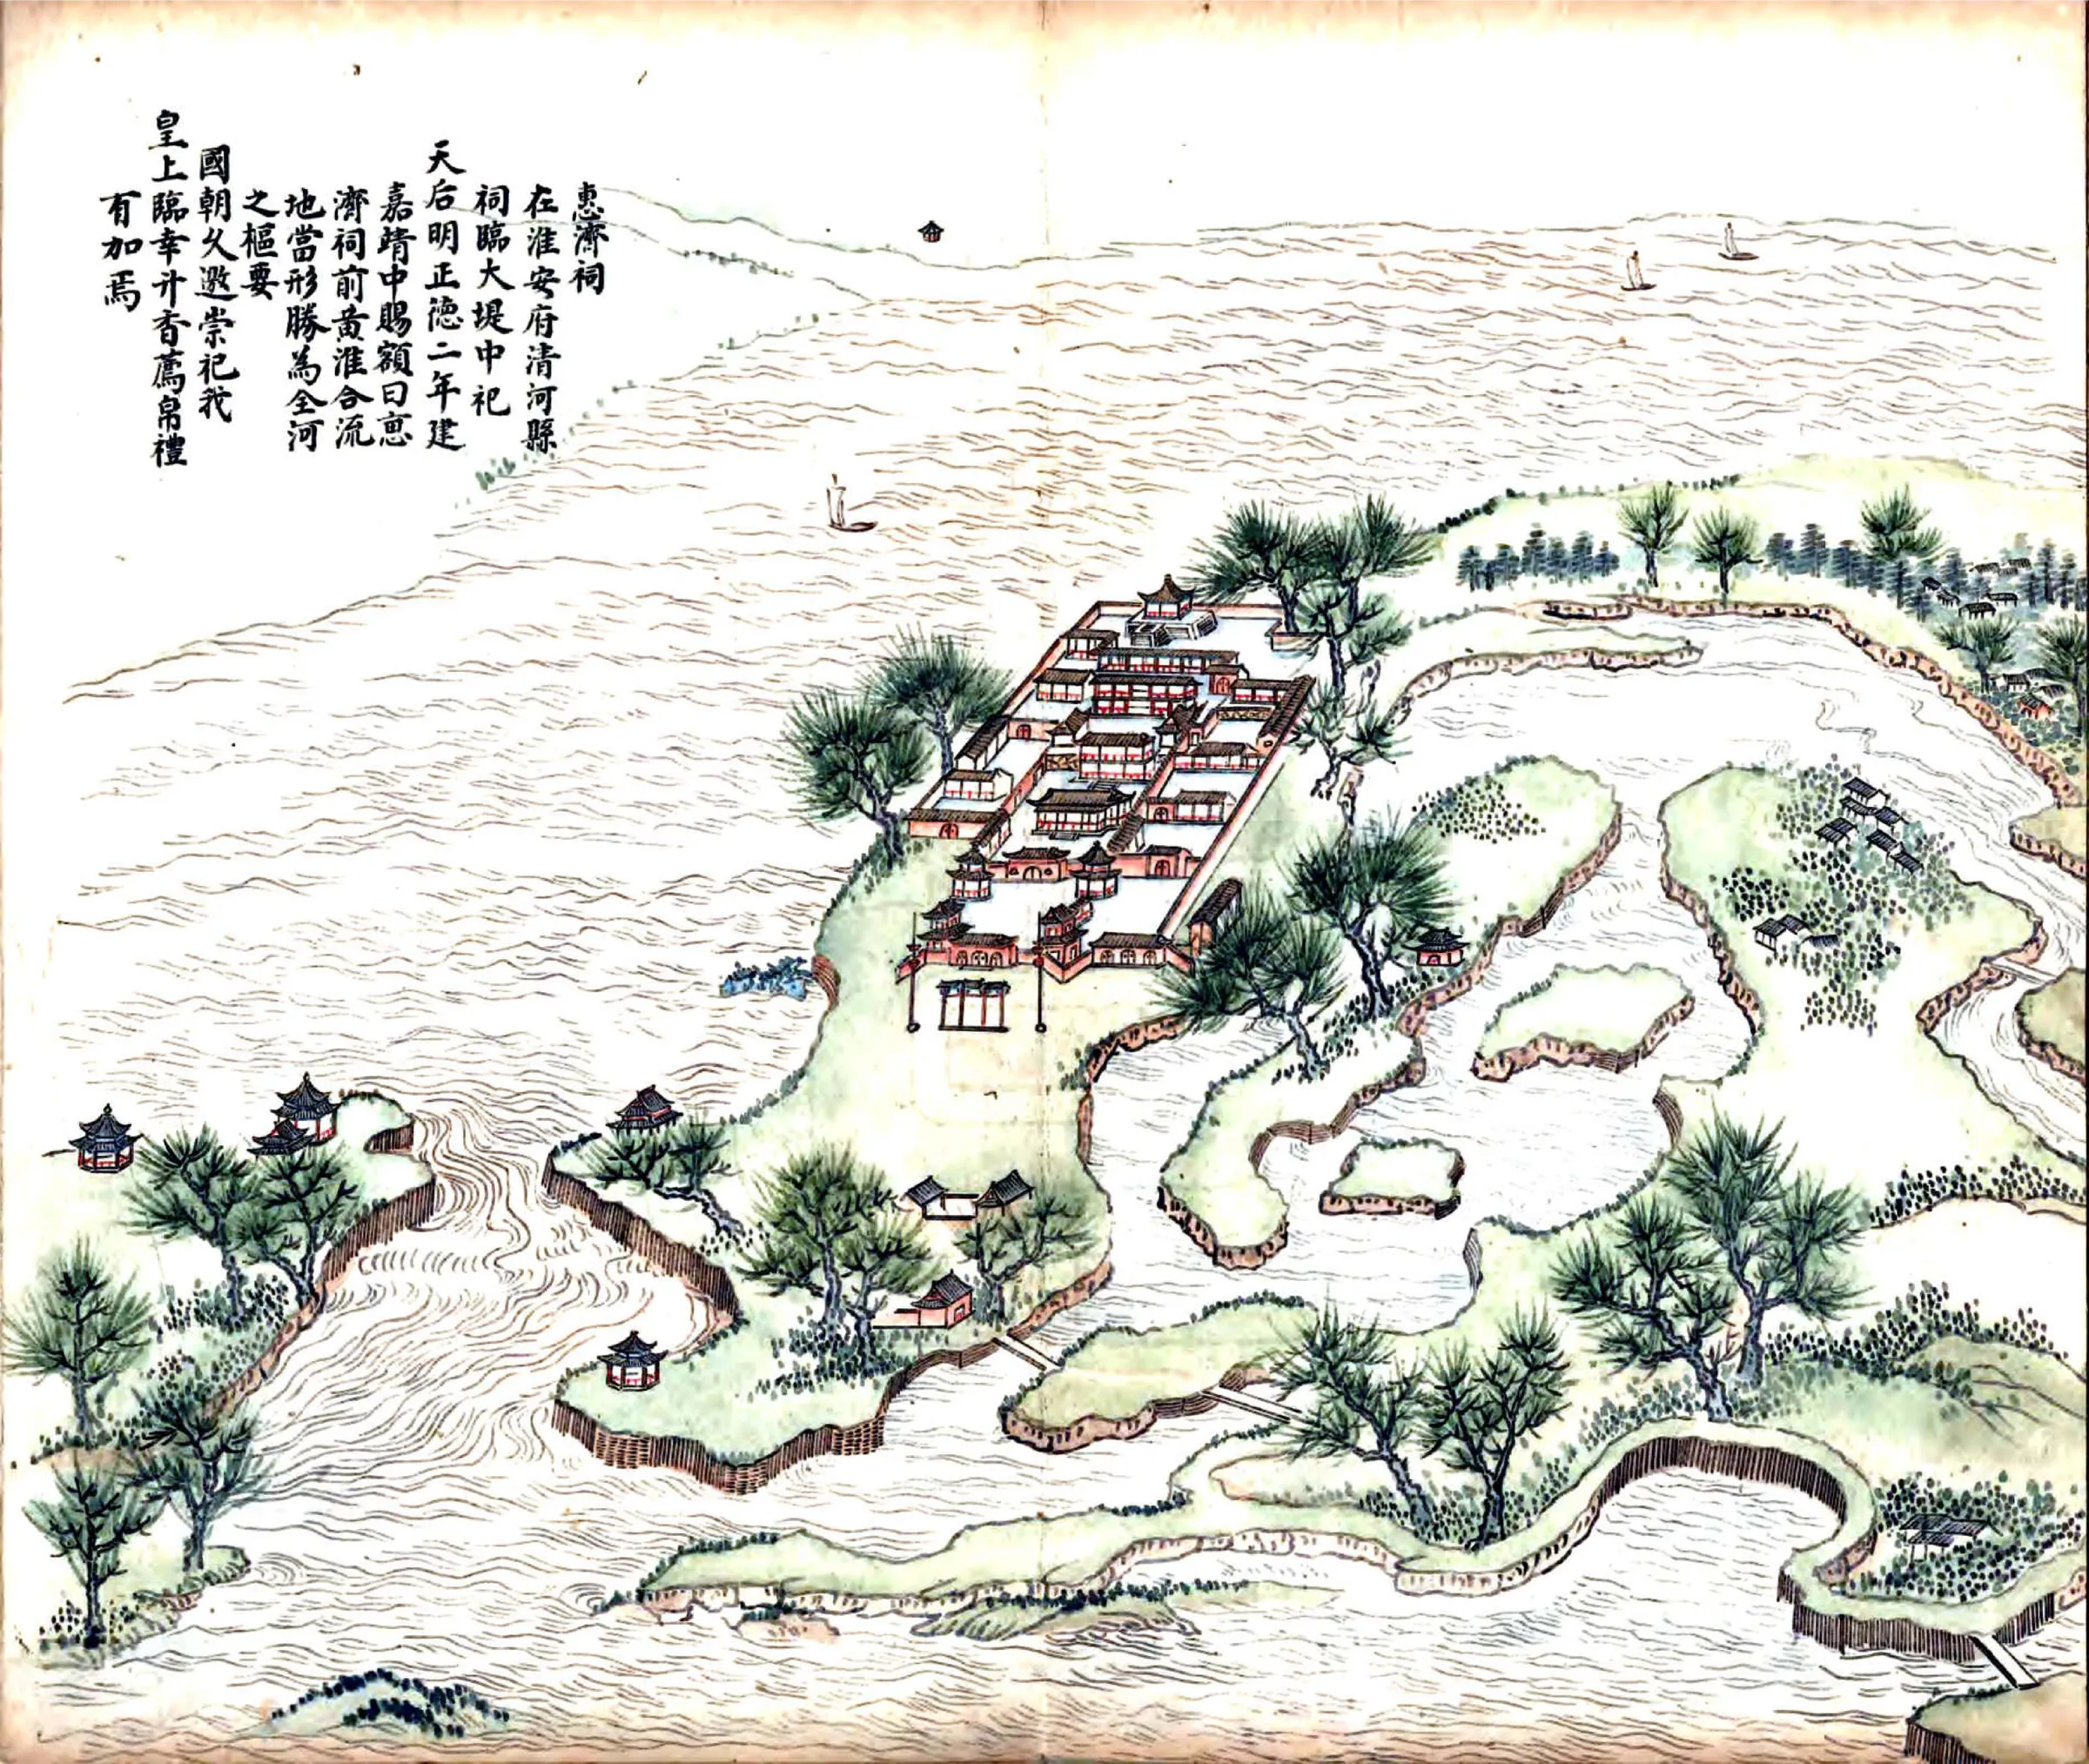 惠濟祠
在淮安府清河縣
祠臨大堤中祀
天后明正德二年建
嘉靖中賜額曰惠
濟祠前黃淮合流
地當形勝為全河
之樞要
國朝久邀崇祀我
皇上臨幸升香薦帛禮
有加焉